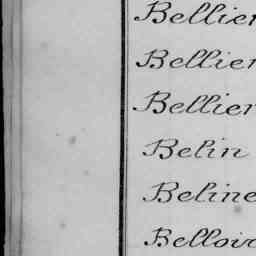 Bellier
Bellier
Bellier
Belin
Beline
Belloir